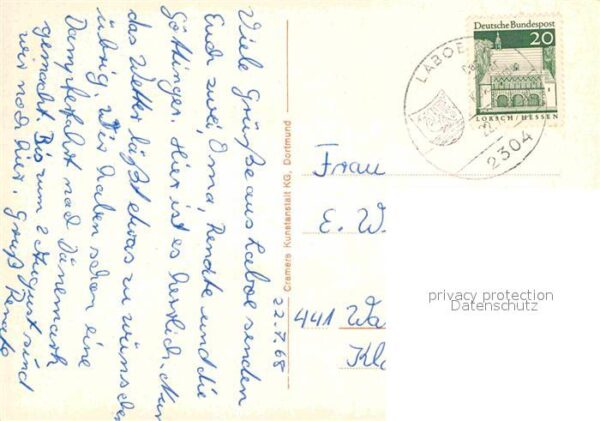 Viele Grüße aus Laboe senden
Euch zwei, Oma, Renate und die
Göttinger. Hier ist es herrlich. Nur
das Wetter läßt etwas zu wünschen
übrig. Wir haben schon eine
Dampferfahrt nach Dänemark
gemacht. Bis zum 2. August sind
wir noch hier. Gruß Renate
22.7.68
Cramers Kunstanstalt KG, Dortmund
Deutsche Bundespost
20
LORSCH/HESSEN
LABOE
2304
Frau
E. W
441 Wa
Kla
privacy protection
Datenschutz